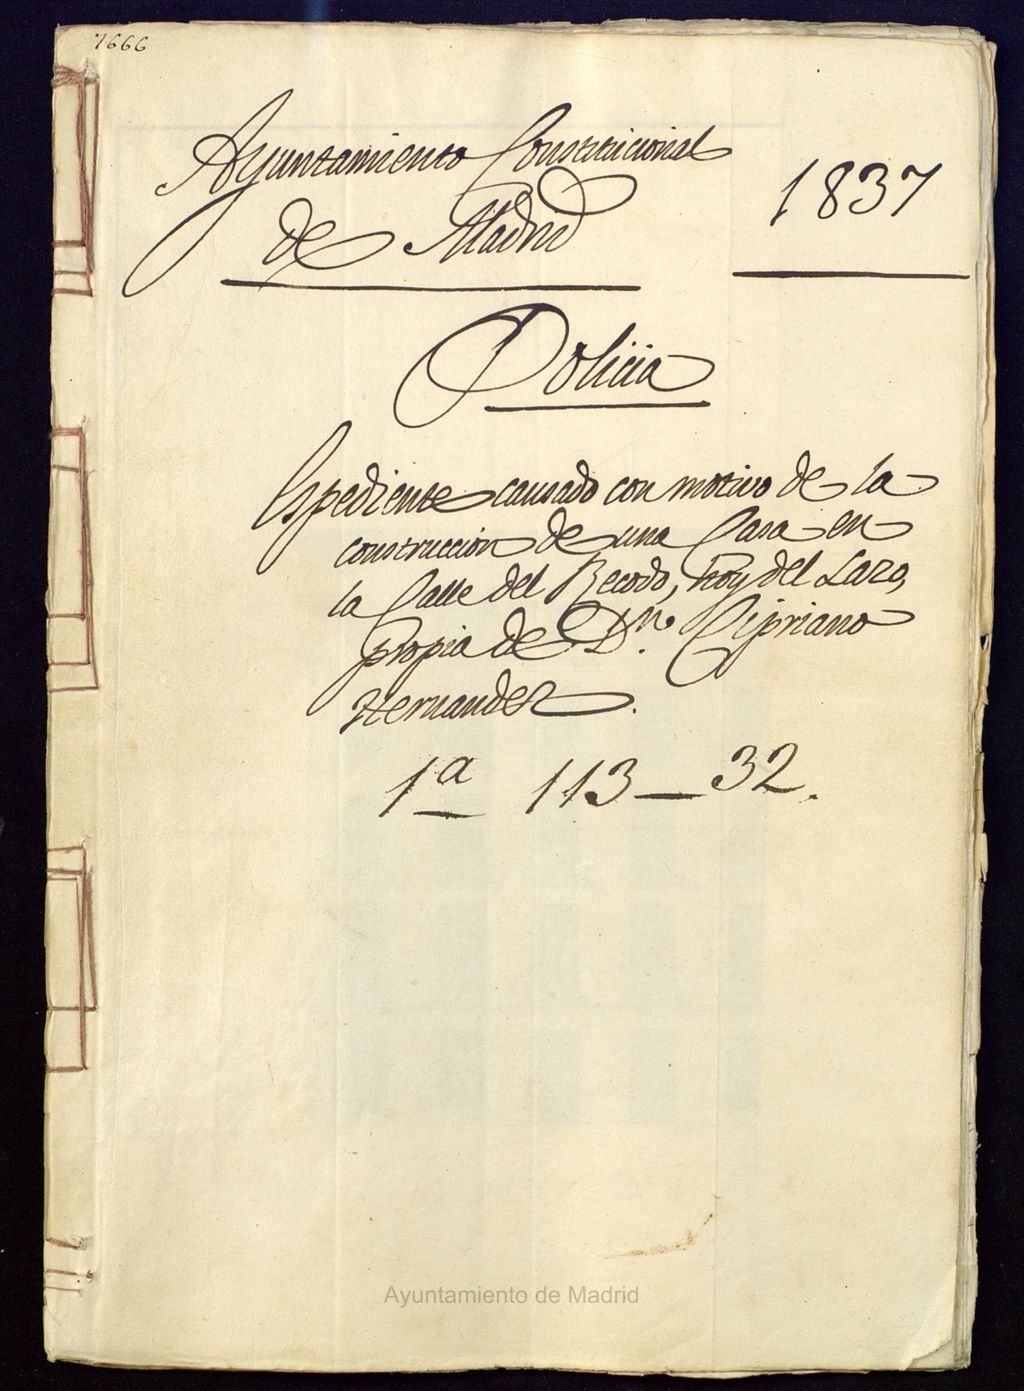 7666
Ayuntamiento Constitucional
de Madrid
1837
Policia
Espediente causado con motivo de la
construccion de una Casa en
la Calle del Recodo, hoy del Lazo,
propia de Dn. Cipriano
Hernandez.
1a 113-32.
Ayuntamiento de Madrid